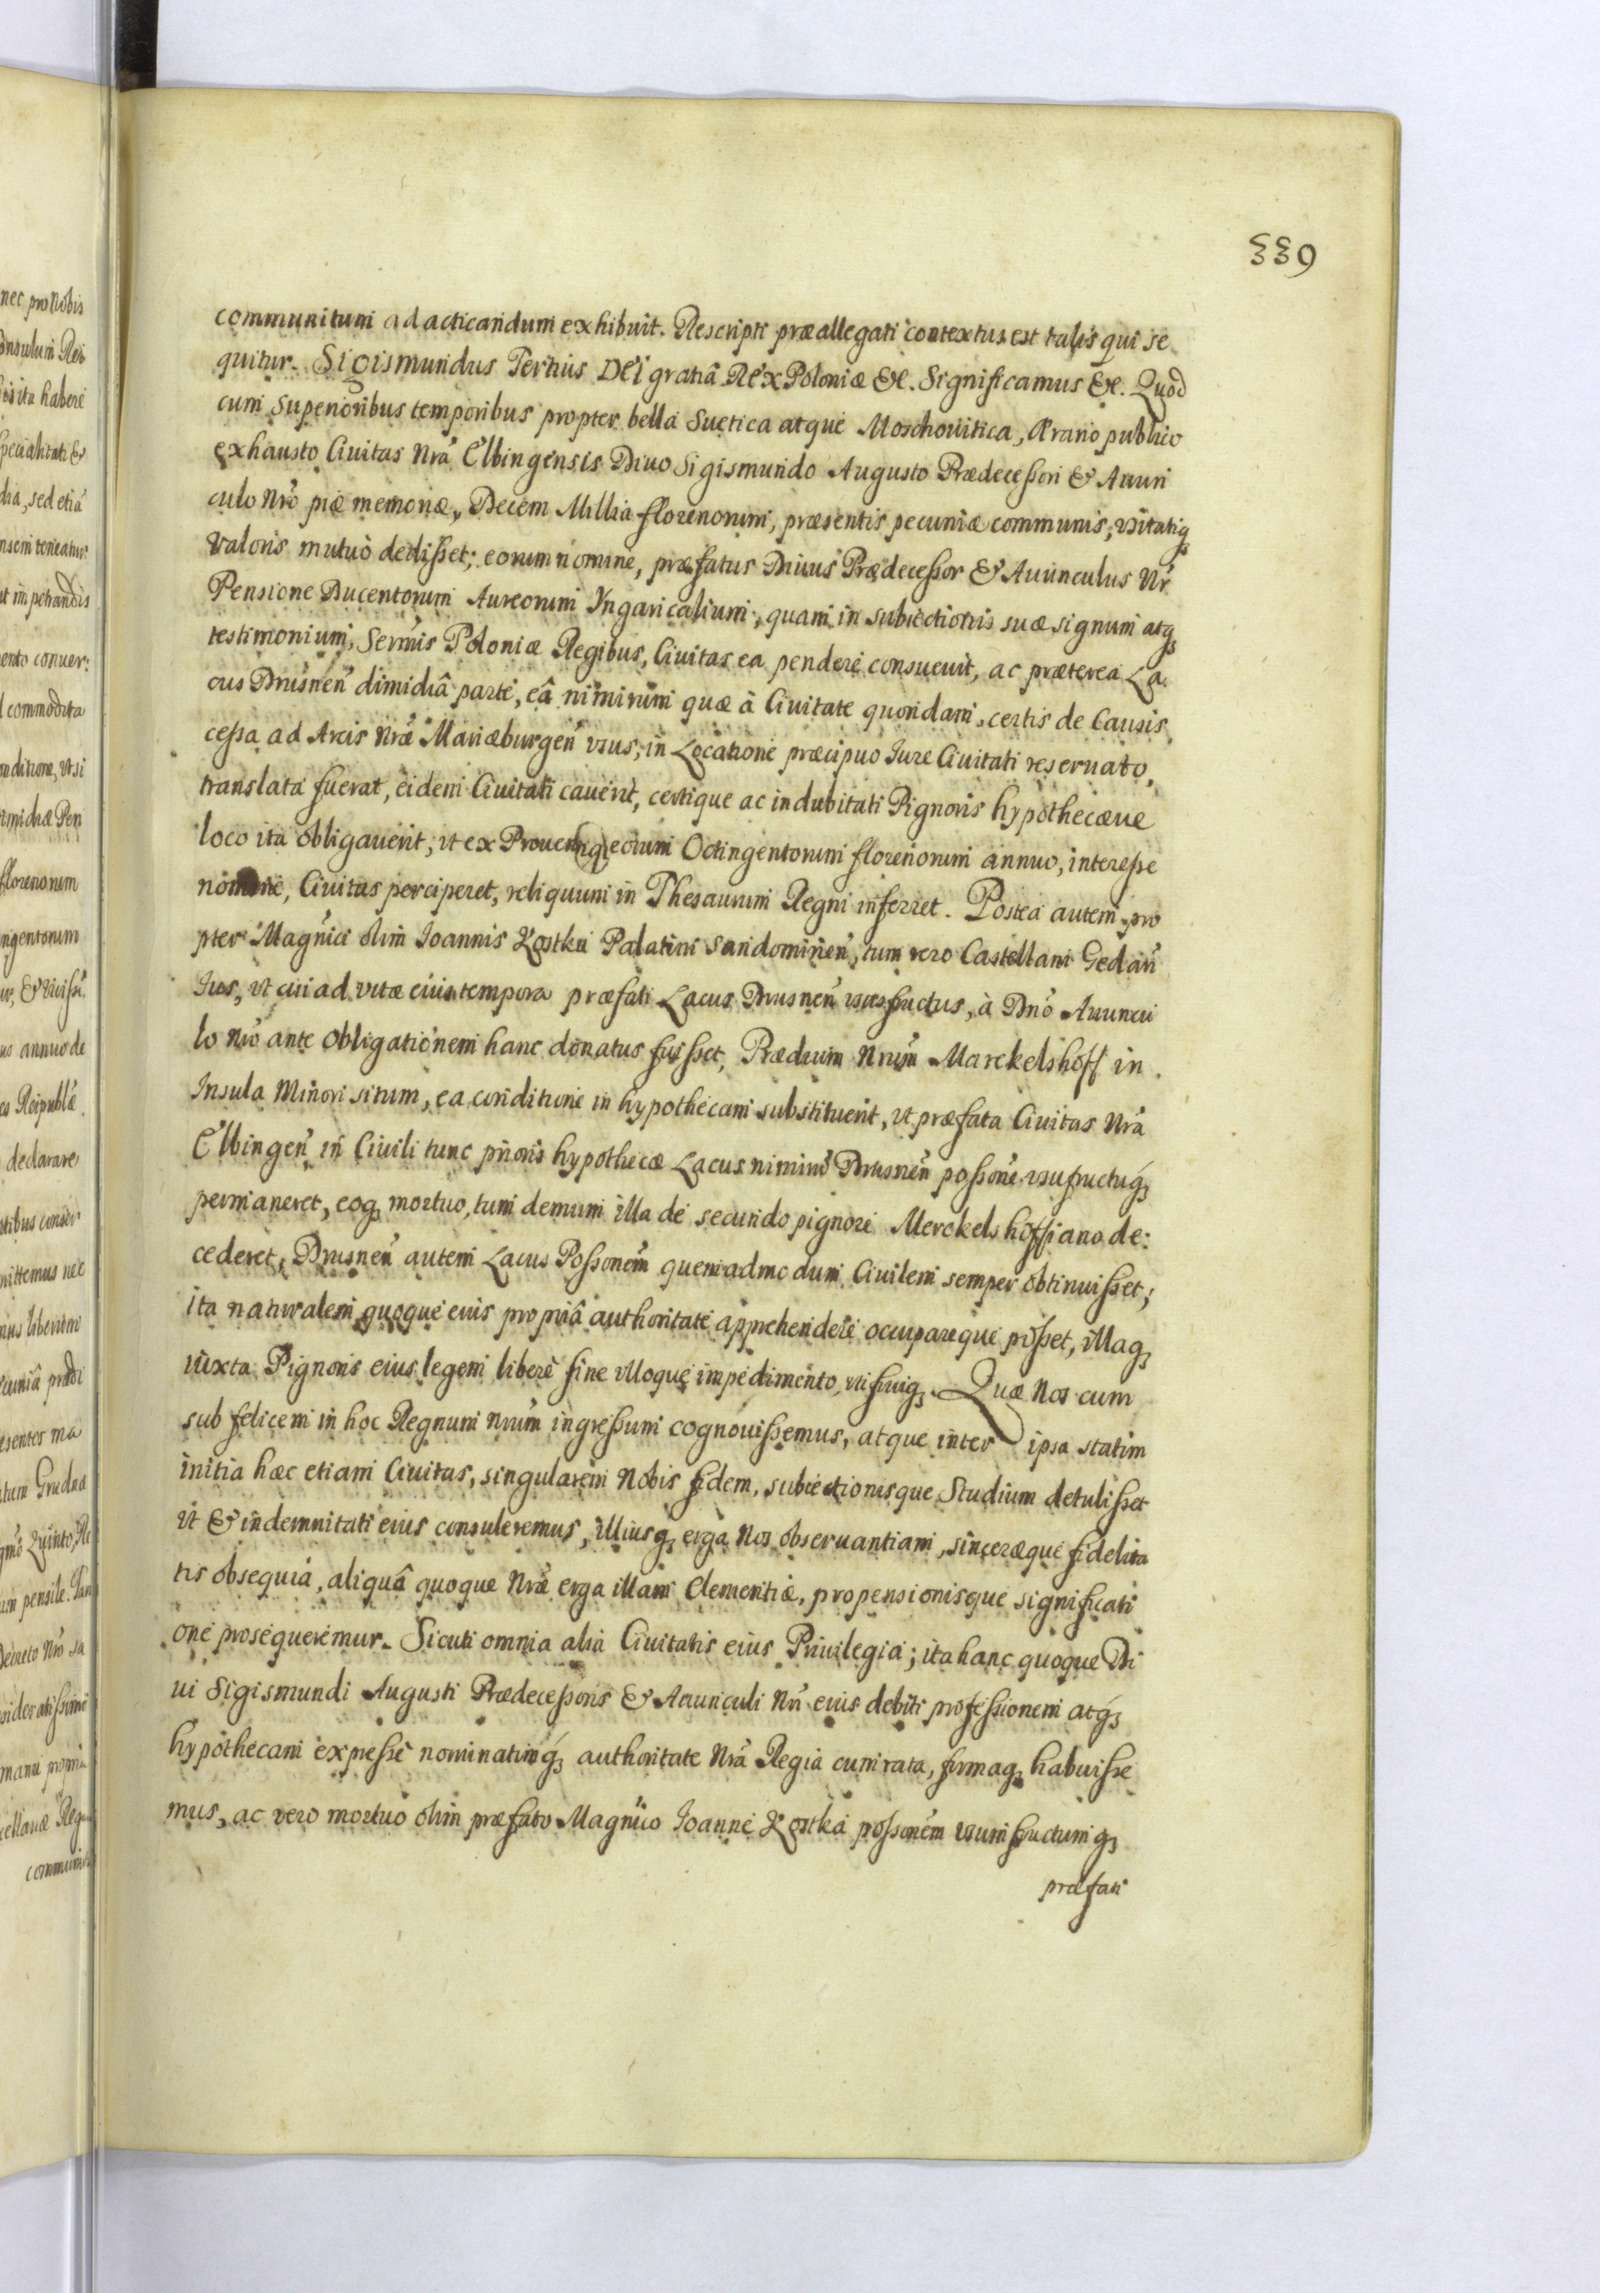 339
communitum ad acticandum exhibuit. Rescripti præallegati contextus est talis qui se
quitur. Sigismundus Tertius DEI gratiâ Rex Poloniæ &c. Significamus &c. Quod
cum superioribus temporibus propter bella Suetica atque Moschouitica, Ærario publico
exhausto Ciuitas Nrã Elbingensis Diuo Sigismundo Augusto Prædecessori & Auun
culo Nrõ piæ memoriæ, Decem Millia florenorum, præsentis pecuniæ communis, vsitatiq;
valoris mutuò dedisset; eorum nomine, præfatus Diuus Prædecessor & Auunculus Nr̃
Pensione Ducentorum Aureorum Vngaricalium, quam in subiectionis suæ signum atq;
testimonium, Sermĩs Poloniæ Regibus, Ciuitas ea pendere consueuit, ac præterea La
cus Drusneñ dimidiâ parte, eâ nimirum quæ à Ciuitate quondam, certis de Causis,
cessa ad Arcis Nræ̃ Mariæburgeñ vsus, in Locatione præcipuo Iure Ciuitati reseruato,
translata fuerat, eidem Ciuitati cauerit, certique ac indubitati Pignoris hypothecæue
loco ita obligauerit, vt ex Prouentiq; eorum Octingentorum florenorum annuo, interesse
nomine, Ciuitas perciperet, reliquum in Thesaurum Regni inferret. Postea autem pro
pter Magnĩci olim Ioannis Kostka Palatini Sandomirieñ, tum vero Castellani Gedañ
Ius, vt cui ad vitæ eius tempora præfati Lacus Drusneñ vsusfructus, à Dnõ Auuncu
lo Nrõ ante obligationem hanc donatus fuisset, Prædium Nrum̃ Marckelshoff in
Insula Minori situm, ea conditione in hypothecam substituerit, vt præfata Ciuitas Nrã
Elbingeñ in Ciuili tunc prioris hypothecæ Lacus nimirũ Drusneñ possonẽ vsufructuq;
permaneret, eoq; mortuo, tum demum illa de secundo pignore Merckelshoffiano de:
cederet, Drusneñ autem Lacus Possonem̃ quemadmodum Ciuilem semper obtinuisset;
ita naturalem quoque eius propriâ authoritate apprehendere occupareque posset, illaq;
iuxta Pignoris eius legem liberè sine vlloque impedimento, vti fruiq;. Quæ Nos cum
sub felicem in hoc Regnum Nrum̃ ingressum cognouissemus, atque inter ipsa statim
initia hæc etiam Ciuitas, singularem Nobis fidem, subiectionisque Studium detulisset
vt & indemnitati eius consuleremus, illiusq; erga Nos obseruantiam, sinceræque fidelita
tis obsequia, aliquâ quoque Nræ̃ erga illam Clementiæ, propensionisque significati
one prosequeremur. Sicuti omnia alia Ciuitatis eius Priuilegia; ita hanc quoque Di
ui Sigismundi Augusti Prædecessoris & Auunculi Nrĩ eius debiti professionem atq;
hypothecam expressè nominatimq; authoritate Nrã Regia cum rata, firmaq; habuisse
mus, ac vero mortuo olim præfato Magnĩco Ioanne Kostka possonem̃ vsumfructumq;
præfati